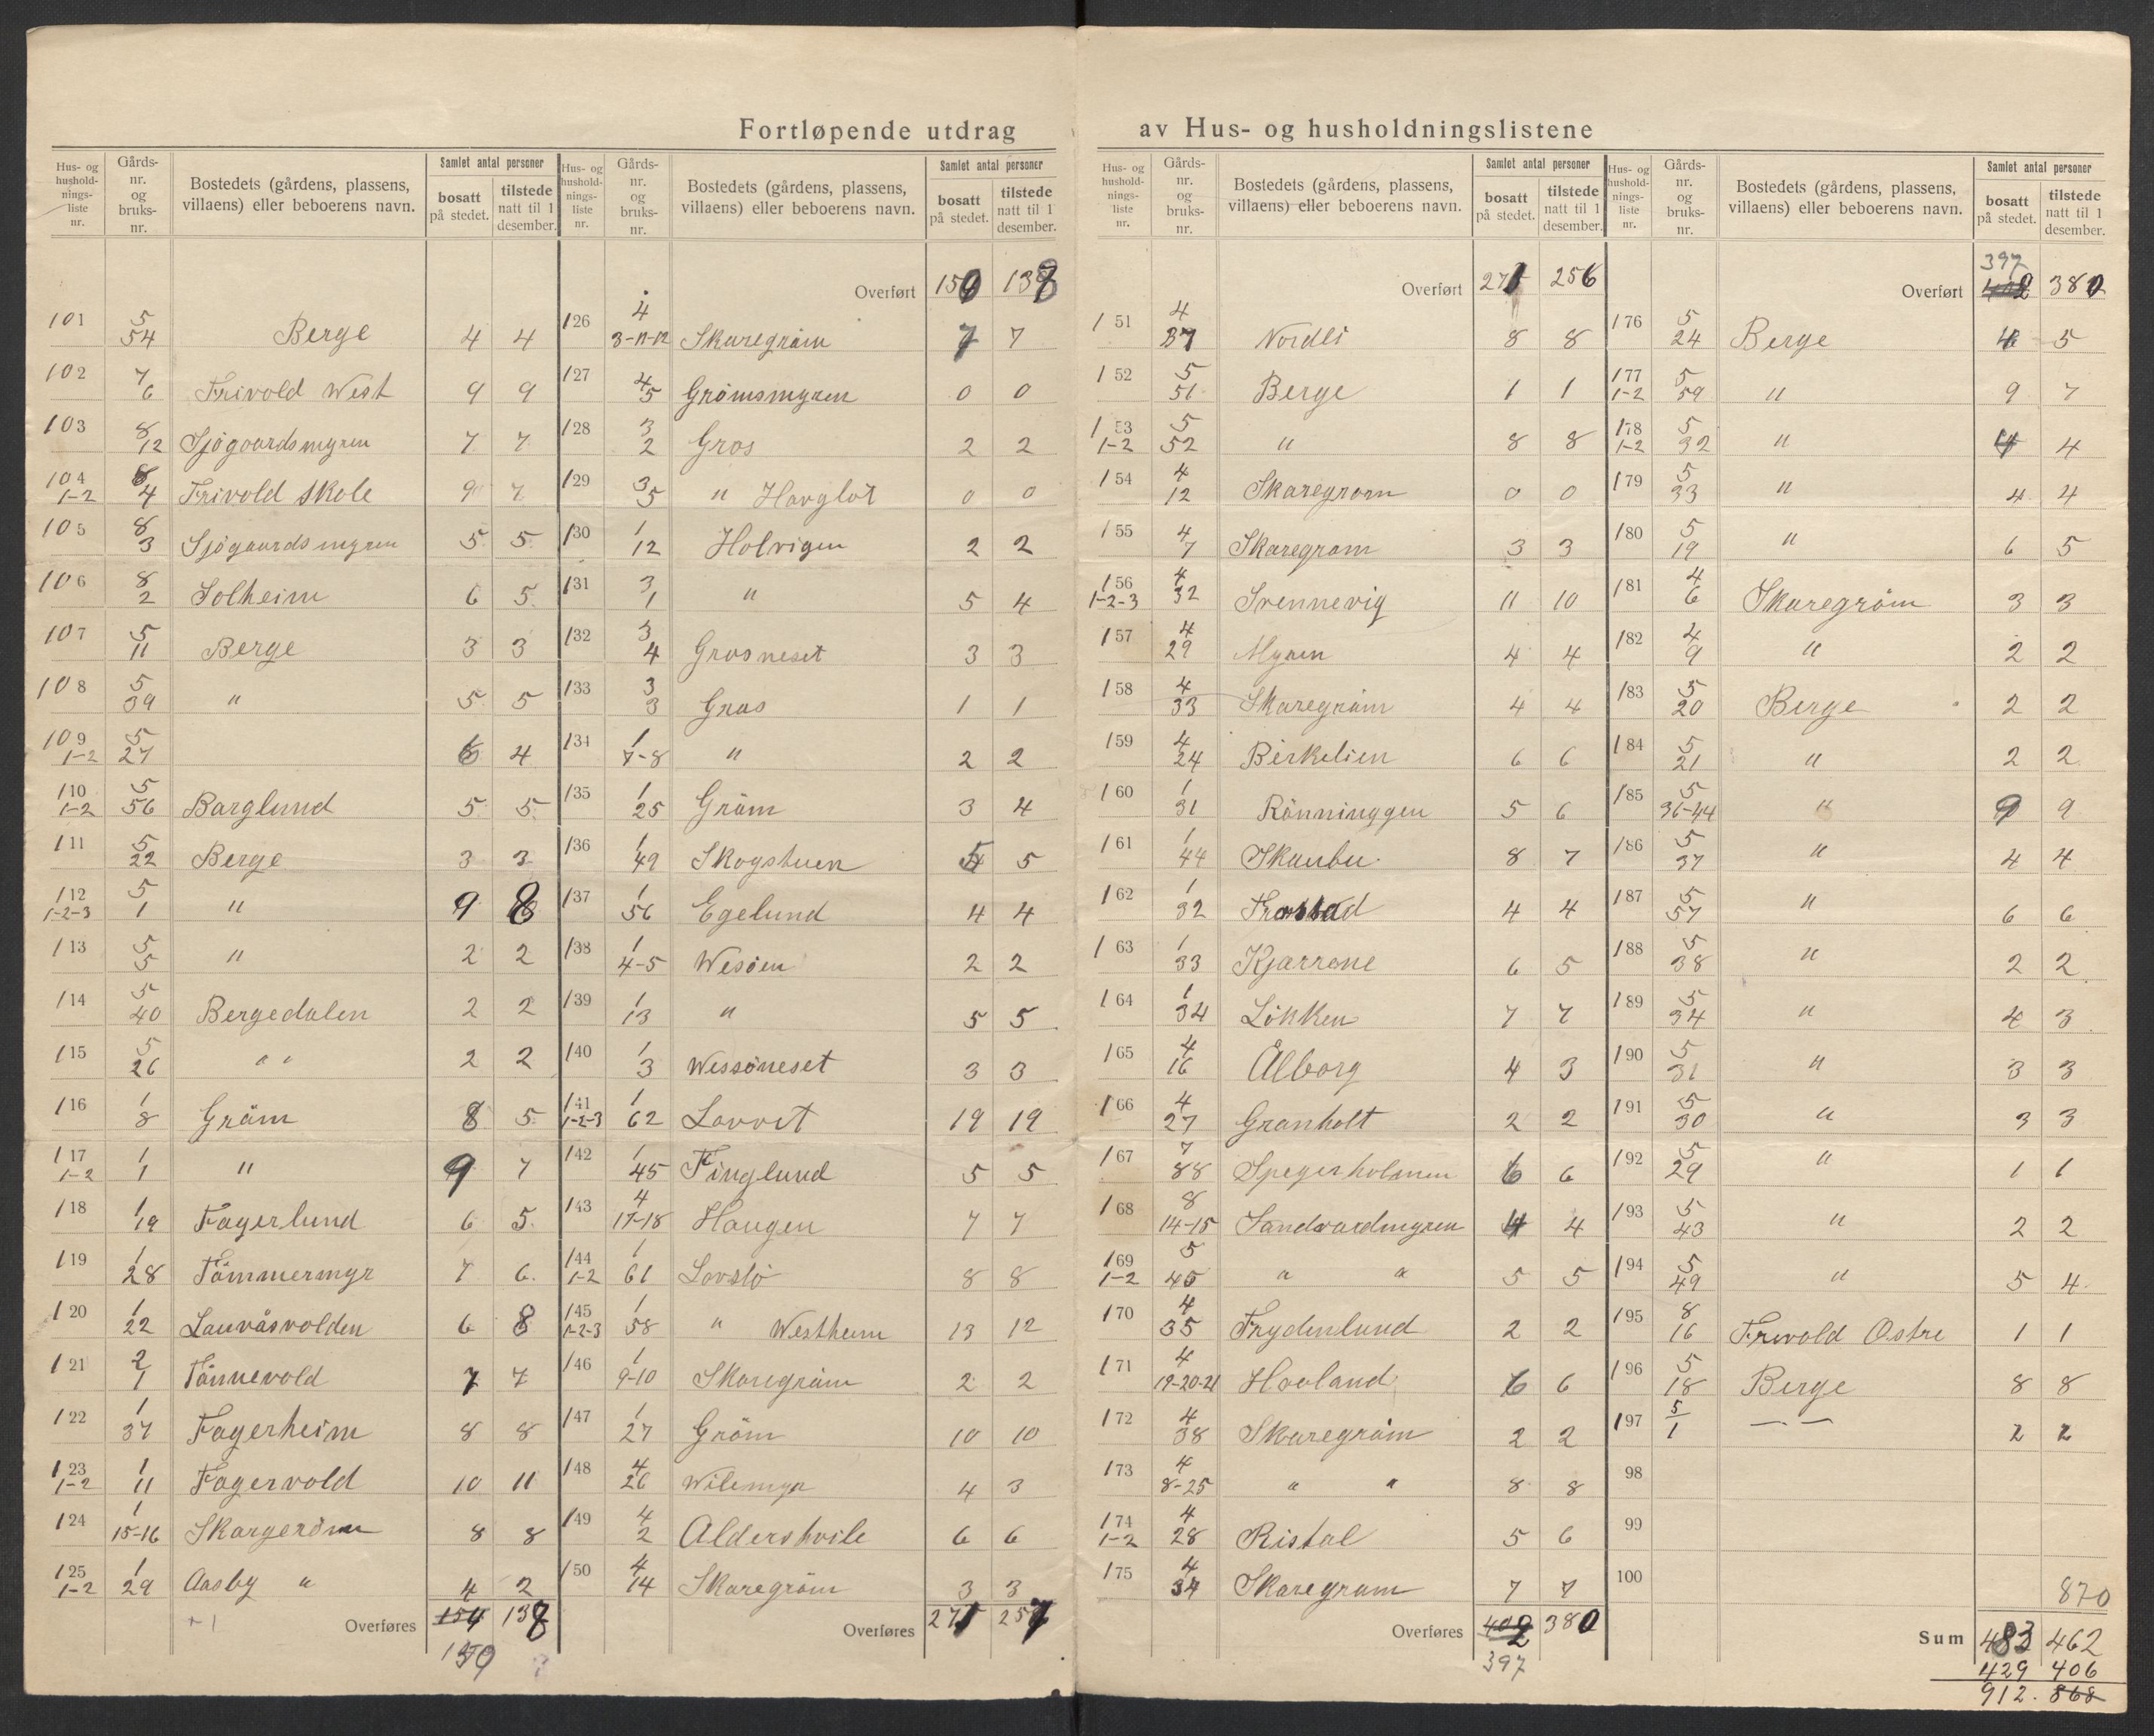 Fortløpende utdrag av Hus- og husholdningslistene
Hus- og hushold- nings- liste nr.
Gårds- nr. og bruks- nr.
Bostedets (gårdens, plassens, villaens) eller beboerens navn.
Samlet antal personer
bosatt på stedet.
tilstede natt til 1 desember.
101 5 54 Berge 4 4
102 7 6 Frivold West 9 9
103 8 12 Sjøgaardsmyren 7 7
104 1-2 8 4 Frivold Skole 9 7
105 8 3 Sjøgaardsmyren 5 5
106 8 2 Solheim 6 5
107 5 11 Berge 3 3
108 5 39 " 5 5
109 1-2 5 27 6 4
110 1-2 5 56 Barglund 5 5
111 5 22 Berge 3 3
112 1-2-3 5 1 " 9 8
113 5 5 " 2 2
114 5 40 Bergedalen 2 2
115 5 26 " " 2 2
116 1 8 Gröm 8 5
117 1-2 1 1 " 9 7
118 1 19 Fagerlund 6 5
119 1 28 Tömmermyr 7 6
120 1 22 Lauvåsvolden 6 8
121 2 1 Tönnevold 7 7
122 1 37 Fagerheim 8 8
123 1-2 1 11 Fagervold 10 11
124 1 15-16 Skargeröm 8 8
125 1-2 1 29 Aasby " 4 2
+1 Overføres 154 138
150
Hus- og hushold- nings- liste nr.
Gårds- nr. og bruks- nr.
Bostedets (gårdens, plassens, villaens) eller beboerens navn.
Samlet antal personer
bosatt på stedet.
tilstede natt til 1 desember.
Overført 150 138
126 4 3-11-12 Skaregröm 7 7
127 4 5 Grömsmyren 0 0
128 3 2 Gros 2 2
129 3 5 " Havgløt 0 0
130 1 12 Holvigen 2 2
131 3 1 " 5 4
132 3 4 Grosneset 3 3
133 3 3 Gros 1 1
134 1 7-8 " 2 2
135 1 25 Gröm 3 4
136 1 49 Skogstuen 5 5
137 1 56 Egelund 4 4
138 1 4-5 Wesöen 2 2
139 1 13 " 5 5
140 1 3 Wessöneset 3 3
141 1-2-3 1 62 Lovvet 19 19
142 1 45 Finglund 5 5
143 4 17-18 Haugen 7 7
144 1-2 1 61 Lovslö 8 8
145 1-2-3 1 58 " Westheim 13 12
146 1 9-10 Skaregröm 2 2
147 1 27 Gröm 10 10
148 4 26 Wilemyr 4 3
149 4 2 Aldershvile 6 6
150 4 14 Skaregröm 3 3
Overføres 271 257
Hus- og hushold- nings- liste nr.
Gårds- nr. og bruks- nr.
Bostedets (gårdens, plassens, villaens) eller beboerens navn.
Samlet antal personer
bosatt på stedet.
tilstede natt til 1 desember.
Overført 271 256
151 4 37 Nordli 8 8
152 5 51 Berge 1 1
153 1-2 5 52 " 8 8
154 4 12 Skaregrom 0 0
155 4 7 Skaregrom 3 3
156 1-2-3 4 32 Svennevig 11 10
157 4 29 Myren 4 4
158 4 33 Skaregröm 4 4
159 4 24 Birkelien 6 6
160 1 31 Rönninggen 5 6
161 1 44 Skaubu 8 7
162 1 32 4 4
163 1 33 Kjærrene 6 5
164 1 34 Lökken 7 7
165 4 16 Ålborg 4 3
166 4 27 Granholt 2 2
167 7 88 Spegerholmen 6 6
168 8 14-15 4 4
169 1-2 5 45 " " 5 5
170 4 35 Frydenlund 2 2
171 4 19-20-21 Hooland 6 6
172 4 38 Skaregröm 2 2
173 4 8-25 " " 8 8
174 1-2 4 28 Ristol 5 6
175 4 34 Skaregrom 7 7
Overføres 402 380
397
Hus- og hushold- nings- liste nr.
Gårds- nr. og bruks- nr.
Bostedets (gårdens, plassens, villaens) eller beboerens navn.
Samlet antal personer
bosatt på stedet.
tilstede natt til 1 desember.
397
Overført 402 380
176 5 24 Berge 4 5
177 1-2 5 59 " 9 7
178 1-2 5 32 " 4 4
179 5 33 " 4 4
180 5 19 " 6 5
181 4 6 Skaregröm 3 3
182 4 9 " 2 2
183 5 20 Berge 2 2
184 5 21 " 2 2
185 5 36-44 " 9 9
186 5 37 " 4 4
187 5 57 " 6 6
188 5 38 " 2 2
189 5 34 " 4 3
190 5 31 " 3 3
191 5 30 " 3 3
192 5 29 " 1 1
193 5 43 " 2 2
194 5 49 " 5 4
195 8 16 Frivold Östre 1 1
196 5 18 Berge 8 8
197 5/1 — — 2 2
98
99
100
870
Sum 483 462
429 406
912. 868